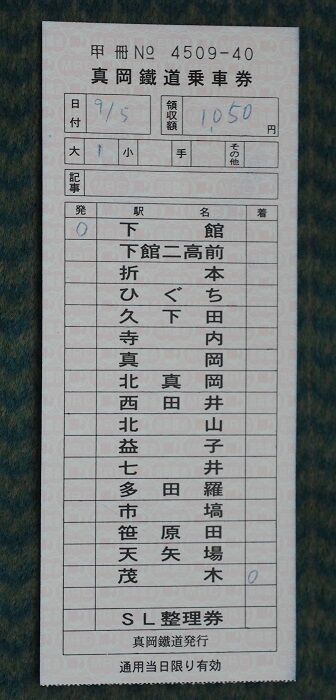 甲 冊 No 4509-40
真岡鐵道乗車券
日付 9/5 領収額 1,050 円
大 1 小 手 その他
記事
発 駅 名 着
0 下 館
下館二高前
折 本
ひ ぐ ち
久 下 田
寺 内
真 岡
北 真 岡
西 田 井
北 山
益 子
七 井
多 田 羅
市 塙
笹 原 田
天 矢 場
茂 木 0
SL整理券
真岡鐵道発行
通用当日限り有効